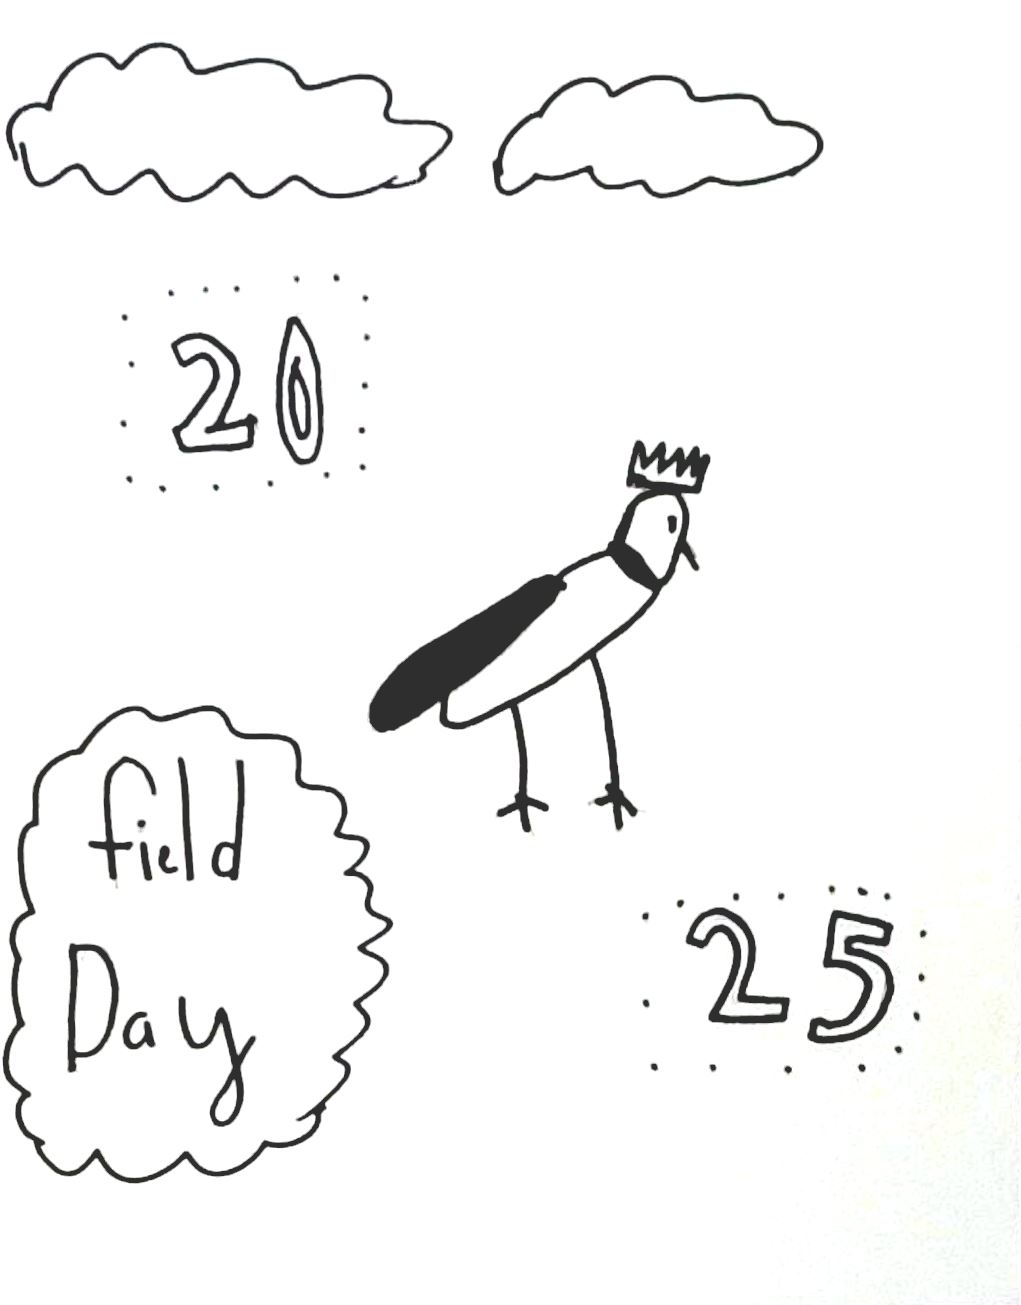 20
field
Day
25